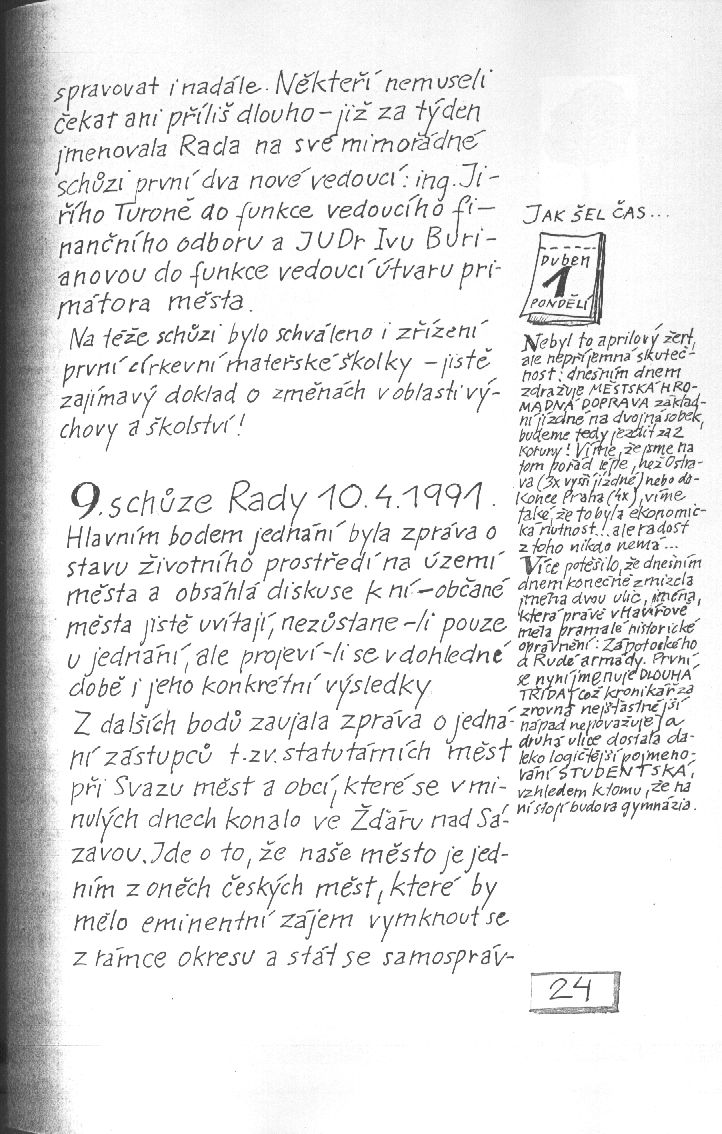 spravovat i nadále. Někteří nemuseli
čekat ani příliš dlouho – již za týden
jmenovala Rada na své mimořádné
schůzi první dva nové vedoucí: ing. Ji-
řího Turoně do funkce vedoucího fi-
nančního odboru a JUDr Ivu Buri-
anovou do funkce vedoucí útvaru pri-
mátora města.
Na téže schůzi bylo schváleno i zřízení
první církevní mateřské školky – jistě
zajímavý doklad o změnách v oblasti vý-
chovy a školství!
9. schůze Rady 10.4.1991.
Hlavním bodem jednání byla zpráva o
stavu životního prostředí na území
města a obsáhlá diskuse k ní – občané
města jistě uvítají, nezůstane-li pouze
u jednání, ale projeví-li se v dohledné
době i jeho konkrétní výsledky
Z dalších bodů zaujala zpráva o jedná-
ní zástupců t.zv. statutárních měst
při Svazu měst a obcí, které se v mi-
nulých dnech konalo ve Žďáru nad Sá-
zavou. Jde o to, že naše město je jed-
ním z oněch českých měst, které by
mělo eminentní zájem vymknout se
z rámce okresu a stát se samospráv-
JAK ŠEL ČAS...
Duben
1
PONDĚLÍ
Nebyl to aprilový žert,
ale nepříjemná skuteč-
nost: dnešním dnem
zdražuje MĚSTSKÁ HRO-
MADNÁ DOPRAVA základ-
ní jízdné na dvojnásobek,
budeme tedy jezdit za 2
koruny! Víme, že jsme na
tom pořád lépe, než Ostra-
va (3x vyšší jízdné) nebo do-
konce Praha (4x), víme
také, že to byla ekonomic-
ká nutnost... ale radost
z toho nikdo nemá...
Více potěšilo, že dnešním
dnem konečně zmizela
jména dvou ulic, jména,
která právě v Havířově
měla pramalé historické
oprávnění: Zápotockého
a Rudé armády. První
se nyní jmenuje DLOUHÁ
TŘÍDA, což kronikář za
zrovna nejšťastnější
nápad nepovažuje, a
druhá ulice dostala da-
leko logičtější pojmeno-
vání STUDENTSKÁ,
vzhledem k tomu, že na
ní stojí budova gymnázia.
24